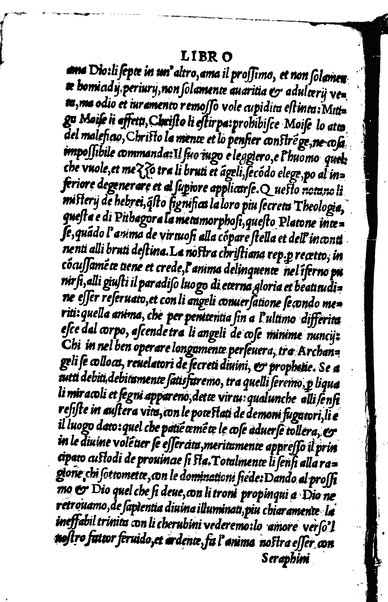 LIBRO
ama Dio: li septe in un'altro, ama il prossimo, et non solamen
te homiadij, periury, non solamente auaritia & adulterij ve
ta, ma odio et iuramento remosso vole cupidita estinta: Miti
go Moise li affetti, Christo li estirpa: prohibisce Moise lo atto
del maleficio, Christo la mente et lo pensier constrĕge, ne cosa
impossibile commanda: Il suo iugo e leggiero, e l'huomo quel
che vuole, et me tra li bruti et āgeli, secōdo elege, po al in
feriore degenerare et al supiore applicarse. Questo notano li
misterij de hebrei, q̄sto significa la loro piu secreta Theologia,
questa e di Pithagora la metamorphosi, questo Platone inte
se, quādo l'anima de virtuosi alla cōpare stella et dell'inconti
nenti alli bruti destina. La nostra christiana rep. p recetto, in
cōcussamēte tiene et crede, l'anima delinquente nel'iferno pu
nirsi, alli giusti il paradiso luogo di eterna gloria et beatitudi
ne esser reseruato, et con li angeli conuersatione secondo me-
riti: quella anima, che per penitentia fin a l'ultimo differita
esce dal corpo, ascende tra li angeli de cose minime nuncij:
Chi in nel ben operare longamente perseuera, tra Archan-
geli se colloca, reuelatori de secreti diuini, & prophetie. Se a
tutti debiti, debitamente satisfaremo, tra quelli seremo, p liqua
li miracoli et segni appareno, dette virtu: qualunche alli sensi
resiste in austera vita, con le potestati de demoni fugatori, li e
il luogo dato: quel che patiētemēte le cose aduerse tollera, &
in le diuine volēter se essercita, meritamente appresso il prin
cipato custodi de prouincie si sta. Totalmente li sensi alla ra-
gione chi sottomette, con le dominationi siede: Dando al prossi
mo & Dio quel che si deue, con li troni propinqui a Dio ne
retrouamo, de sapientia diuina illuminati, piu chiaramente la
ineffabil trinita con li cherubini vederemo: lo amore verso'l
nostro fattor feruido, et ardente, fa l'anima nostra esser con
Seraphini